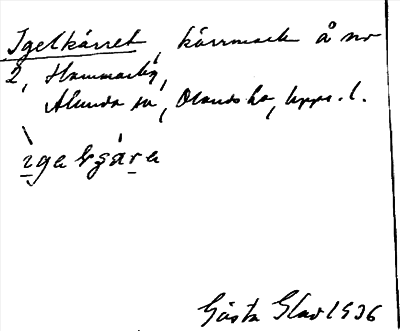 Igelkärret, kärrmark å nr
2, Hammarby,
Alunda sn, Olands hd, Upps. l.
Gösta Glad 1936